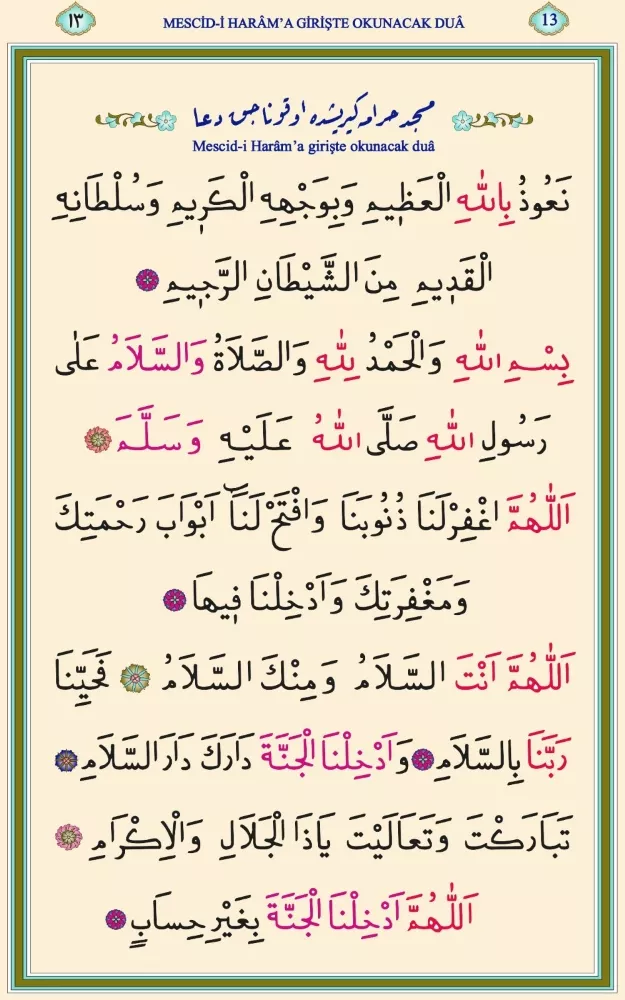 ١٣ MESCİD-İ HARÂM’A GİRİŞTE OKUNACAK DUÂ 13
مسجد حرامه كيريشده اوقوناجق دعا
Mescid-i Harâm’a girişte okunacak duâ
نَعُوذُ بِاللّٰهِ الْعَظٖيمِ وَبِوَجْهِهِ الْكَرٖيمِ وَسُلْطَانِهِ
الْقَدٖيمِ مِنَ الشَّيْطَانِ الرَّجٖيمِ
بِسْمِ اللّٰهِ وَالْحَمْدُ لِلّٰهِ وَالصَّلَاةُ وَالسَّلَامُ عَلٰى
رَسُولِ اللّٰهِ صَلَّى اللّٰهُ عَلَيْهِ وَسَلَّمَ
اَللّٰهُمَّ اغْفِرْلَنَا ذُنُوبَنَا وَافْتَحْ لَنَٓا اَبْوَابَ رَحْمَتِكَ
وَمَغْفِرَتِكَ وَاَدْخِلْنَا فٖيهَا
اَللّٰهُمَّ اَنْتَ السَّلَامُ وَمِنْكَ السَّلَامُ فَحَيِّنَا
رَبَّنَا بِالسَّلَامِ وَاَدْخِلْنَا الْجَنَّةَ دَارَكَ دَارَ السَّلَامِ
تَبَارَكْتَ وَتَعَالَيْتَ يَاذَا الْجَلَالِ وَالْاِكْرَامِ
اَللّٰهُمَّ اَدْخِلْنَا الْجَنَّةَ بِغَيْرِ حِسَابٍ